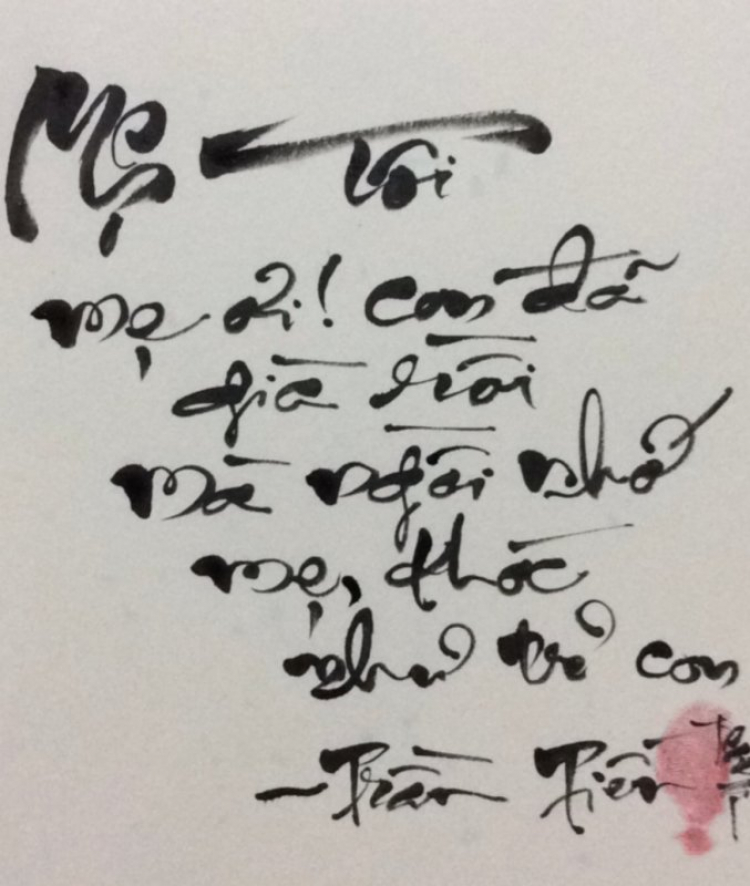 Mẹ Tôi
mẹ ơi! con đã
già rồi
mà ngồi nhớ
mẹ, khóc
như trẻ con
– Trần Tiến